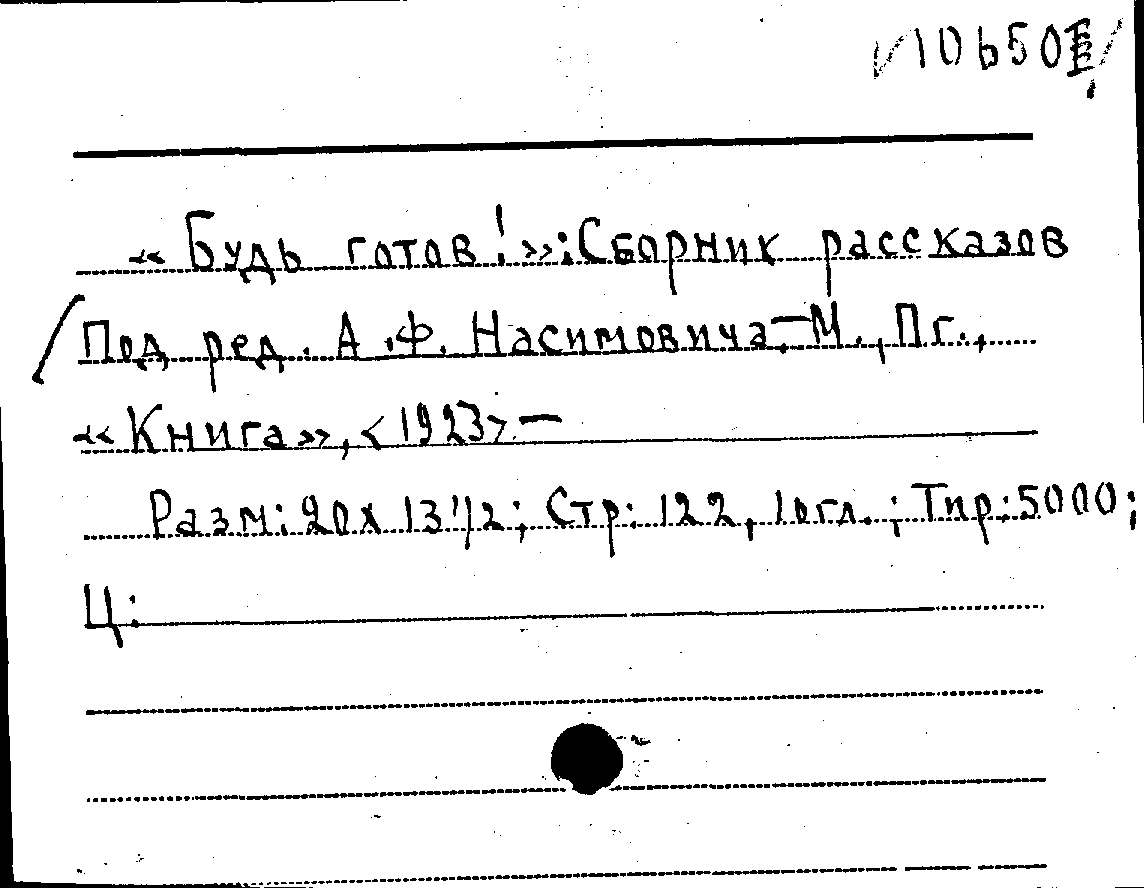 10650
«Будь готов!»: Сборник рассказов
/Под ред. А.Ф. Насимовича.–М., Пг.,
«Книга», <1923>.–
Разм: 20х13 1/2; Стр: 122, 1 огл.; Тир: 5000;
Ц: